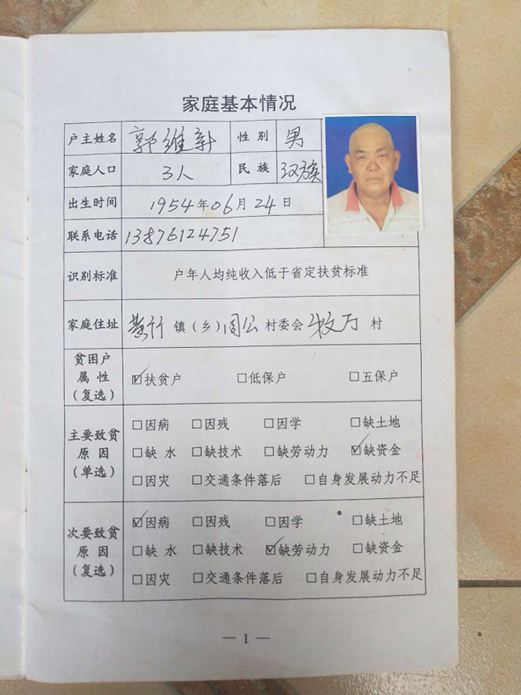 家庭基本情况
户主姓名 郭维新 性别 男
家庭人口 3人 民族 汉族
出生时间 1954年06月24日
联系电话 13876124751
识别标准 户年人均纯收入低于省定扶贫标准
家庭住址 镇(乡) 周公 村委会 村
贫困户
属性
(复选)
☑扶贫户 □低保户 □五保户
主要致贫
原因
(单选)
□因病 □因残 □因学 □缺土地
□缺水 □缺技术 □缺劳动力 ☑缺资金
□因灾 □交通条件落后 □自身发展动力不足
次要致贫
原因
(复选)
☑因病 □因残 □因学 □缺土地
□缺水 □缺技术 ☑缺劳动力 □缺资金
□因灾 □交通条件落后 □自身发展动力不足
— 1 —